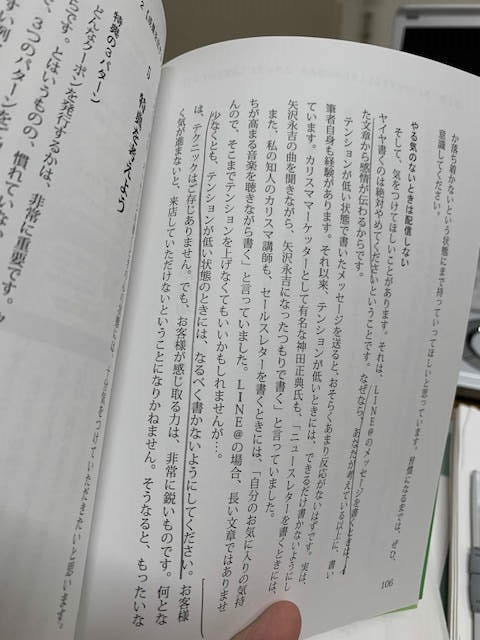 か落ち着かないという状態にまで持っていってほしいと思っています。習慣になるまでは、ぜひ、
意識してください。
やる気のないときは配信しない
そして、気をつけてほしいことがあります。それは、LINE@のメッセージを書くときは、
ヤイヤ書くのは絶対やめてくださいということです。なぜなら、あなたが考えている以上に、書い
た文章から感情が伝わるからです。
テンションが低い状態で書いたメッセージを送ると、おそらくあまり反応がないはずです。実は、
筆者自身も経験があります。それ以来、テンションが低いときには、できるだけ書かないようにし
ています。カリスママーケッターとして有名な神田正典氏も、「ニュースレターを書くときには、
矢沢永吉の曲を聞きながら、矢沢永吉になったつもりで書く」と言っていました。
また、私の知人のカリスマ講師も、セールスレターを書くときには、「自分のお気に入りの気持
ちが高まる音楽を聴きながら書く」と言っていました。LINE@の場合、長い文章ではありませ
んので、そこまでテンションを上げなくてもいいかもしれませんが…。
少なくとも、テンションが低い状態のときには、なるべく書かないようにしてください。お客様
は、テクニックはご存じありません。でも、お客様が感じ取る力は、非常に鋭いものです。何とな
く気が進まないと、来店していただけないということになりかねません。そうなると、もったいな
106
特典を考えよう
特典の3パターン
どんなクーポンを発行するかは、非常に重要です。
です。とはいうものの、慣れていない
で、3つのパターンを